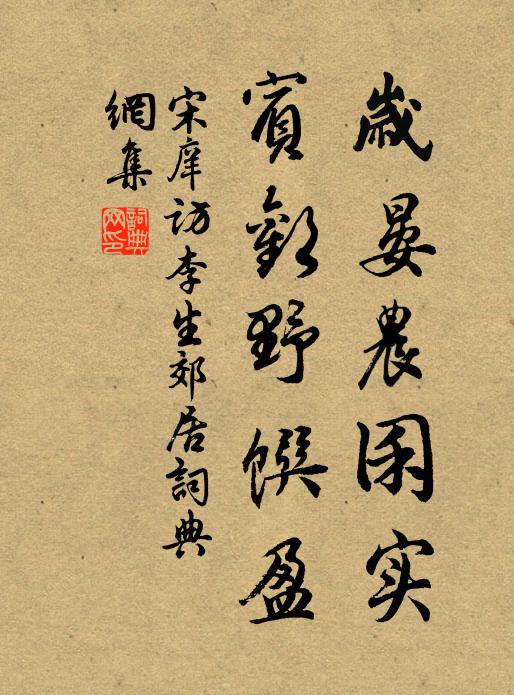 歲晏農囷实
賓歡野饌盈
宋庠訪李生郊居詞典
網集
詞典
网印